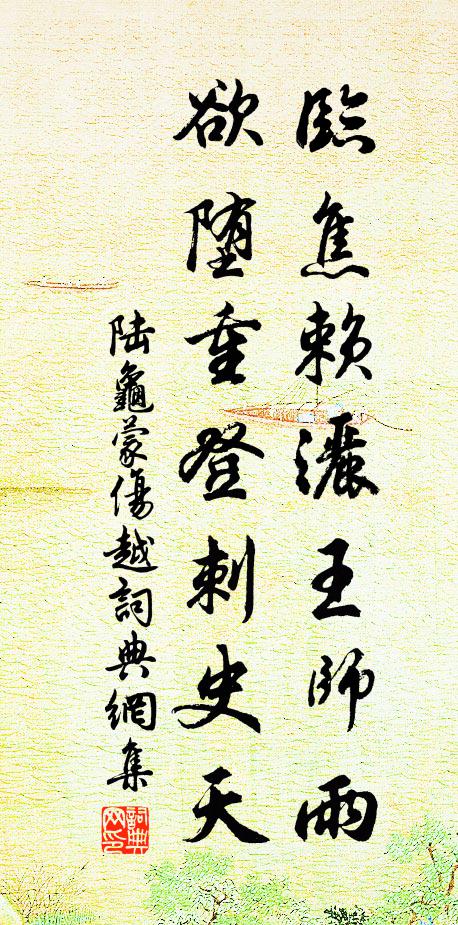 臨焦賴灑王師雨
欲墮重登刺史天
陸龜蒙傷越詞典網集
詞典網印